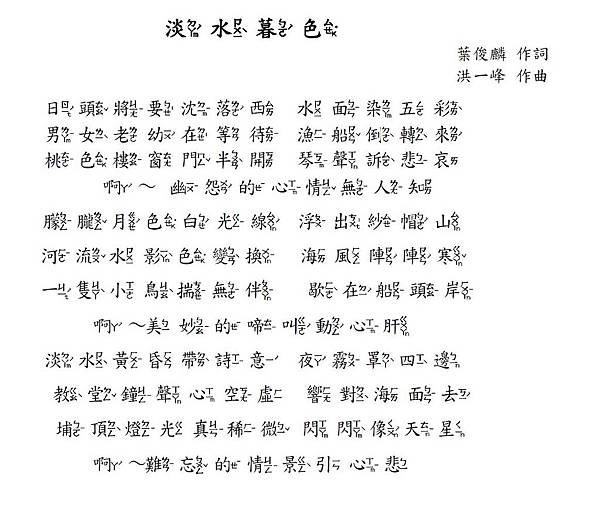 淡水暮色
葉俊麟 作詞
洪一峰 作曲
日頭將要沈落西 水面染五彩
男女老幼在等待 漁船倒轉來
桃色樓窗門半開 琴聲訴悲哀
啊～ 幽怨的心情無人知
朦朧月色白光線 浮出紗帽山
河流水影色變換 海風陣陣寒
一隻小鳥揣無伴 歇在船頭岸
啊～美妙的啼叫動心肝
淡水黃昏帶詩意 夜霧罩四邊
教堂鐘聲心空虛 響對海面去
埔頂燈光真稀微 閃閃像天星
啊～難忘的情景引心悲